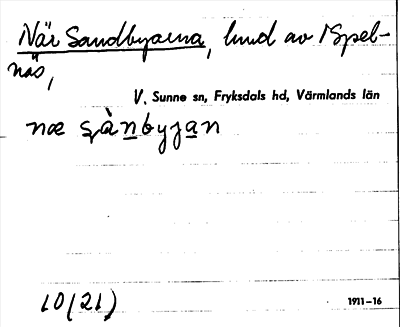 När Sandbyarna, lund av Spel-
näs,
V. Sunne sn, Fryksdals hd, Värmlands län
næ sànbyjan
10(21)
1911–16